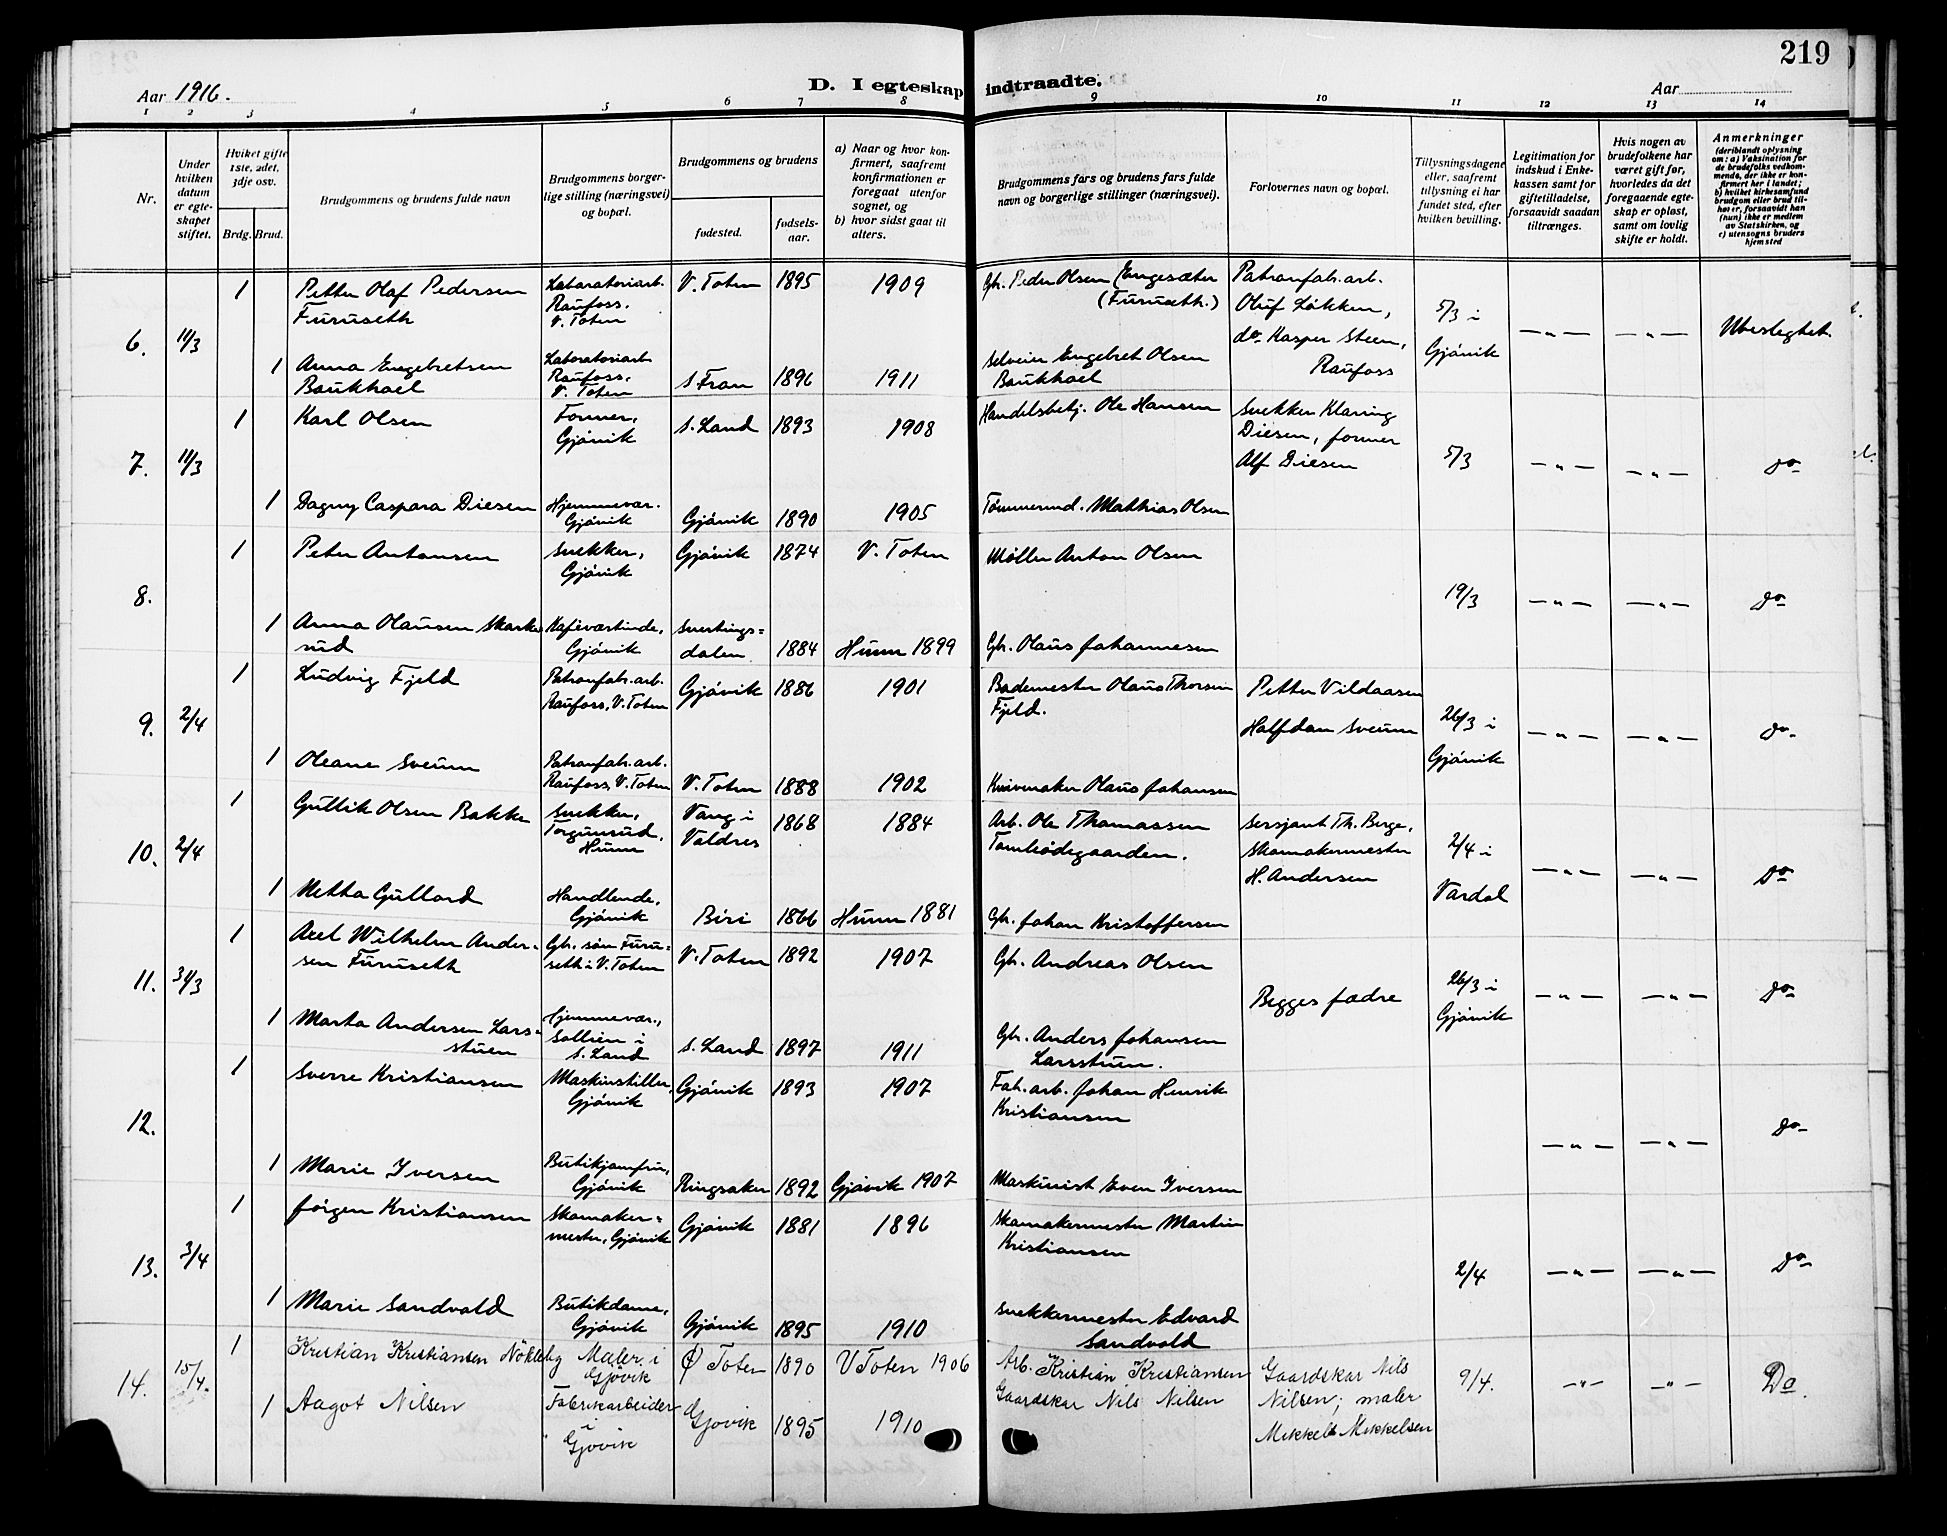 219
Aar 1916.
D. I egteskap indtraadte.
Aar
1 2 3 4 5 6 7 8 9 10 11 12 13 14
Nr.
Under hvilken datum er egteskapet stiftet.
Hvilket gifte 1ste, 2det, 3dje osv.
Brdg. Brud.
Brudgommens og brudens fulde navn
Brudgommens borgerlige stilling (næringsvei) og bopæl.
Brudgommens og brudens
fødested.
fødselsaar.
a) Naar og hvor konfirmert, saafremt konfirmationen er foregaat utenfor sognet, og
b) hvor sidst gaat til alters.
Brudgommens fars og brudens fars fulde navn og borgerlige stillinger (næringsvei).
Forlovernes navn og bopæl.
Tillysningsdagene eller, saafremt tillysning ei har fundet sted, efter hvilken bevilling.
Legitimation for indskud i Enkekassen samt for giftetilladelse, forsaavidt saadan tiltrænges.
Hvis nogen av brudefolkene har været gift før, hvorledes da det foregaaende egteskap er opløst, samt om lovlig skifte er holdt.
Anmerkninger
(deriblandt oplysning om: a) Vaksination for de brudefolks vedkommende, der ikke er konfirmert her i landet; b) hvilket kirkesamfund brudgom eller brud tilhører, forsaavidt han (hun) ikke er medlem av Statskirken, og c) utensogns bruders hjemsted
6. 11/3
1 Petter Olaf Pedersen Furuseth
Laboratoriarb. Raufoss, V. Toten
V. Toten 1895 1909
Gb. Peder Olsen (Engesæter (Furuseth.)
Patronfabr.arb. Oluf Løkken, do. Kasper Steen, Raufoss
5/3 i Gjövik
— " — — " — Ubeslegtet.
1 Anna Engebretsen Baukhoel
Laboratoriarb. Raufoss, V. Toten
S. Fron 1896 1911
Selveier Engebret Olsen Baukhoel
7. 11/3
1 Karl Olsen
Former, Gjövik
S. Land 1893 1908
Handelsbetj. Ole Hansen
Snekker Klaring Diesen, former Alf Diesen
5/3 — " — — " — do
1 Dagny Caspara Diesen
Hjemmevær. Gjövik
Gjövik 1890 1905
Tømmermd. Mathias Olsen
8.
1 Peter Antonsen
Snekker, Gjövik
Gjövik 1874 V. Toten
Møller Anton Olsen
19/3 — " — — " — do
1 Anna Olausen Skarkerud
Kafeværtinde, Gjövik
Snertingsdalen 1884 Hunn 1899
Gb. Olaus Johannesen
9. 2/4
1 Ludvig Fjeld
Patronfabr.arb. Raufoss, V. Toten
Gjövik 1886 1901
Bademester Olaus Thorsen Fjeld.
Petter Vildaasen
Halfdan Sveum
26/3 i Gjövik
— " — — " — do
1 Oleane Sveum
Patronfabr.arb. Raufoss, V. Toten
V. Toten 1888 1902
Knivmaker Olaus Johansen
10. 2/4
1 Gullik Olsen Bakke
Snekker, Torgunrud, Hunn
Vang i Valdres 1868 1884
Arb. Ole Thomassen
Sersjant Th. Berge, Skomakermester H. Andersen
2/4 i Vardal
— " — — " — Do
1 Metha Gullord
Handlende, Gjövik
Biri 1866 Hunn 1881
Gb. Johan Kristoffersen
11. 31/3
1 Axel Wilhelm Andersen Furuseth
Gb. søn Furuseth i V. Toten
V. Toten 1892 1907
Gb. Andreas Olsen
Begges fædre
26/3 i Gjövik
— " — — " — do
1 Marta Andersen Larsstuen
Hjemmevær., Sollien i S. Land
S. Land 1897 1911
Gb. Anders Johansen Larsstuen.
12.
1 Sverre Kristiansen
Maskinstiller, Gjövik
Gjövik 1893 1907
Fab. arb. Johan Henrik Kristiansen
— " — — " — do
1 Marie Iversen
Butikjomfru, Gjövik
Ringsaker 1892 Gjövik 1907
Maskinist Even Iversen
13. 3/4
1 Jörgen Kristiansen
Skomakermester, Gjövik
Gjövik 1881 1896
Skomakermester Martin Kristiansen
2/4 — " — — " — do
1 Marie Sandvold
Butikdame, Gjövik
Gjövik 1895 1910
Snekkermester Edvard Sandvold
14. 15/4.
1 Kristian Kristiansen Nökleby
Maler i Gjövik
Ø Toten 1890 V Toten 1906
Arb. Kristian Kristiansen
Gaardskar Nils Nilsen; maler Mikkel Mikkelsen
9/4. — " — — " — Do.
1 Aagot Nilsen
Fabrikarbeider i Gjövik
Gjövik 1895 1910
Gaardskar Nils Nilsen